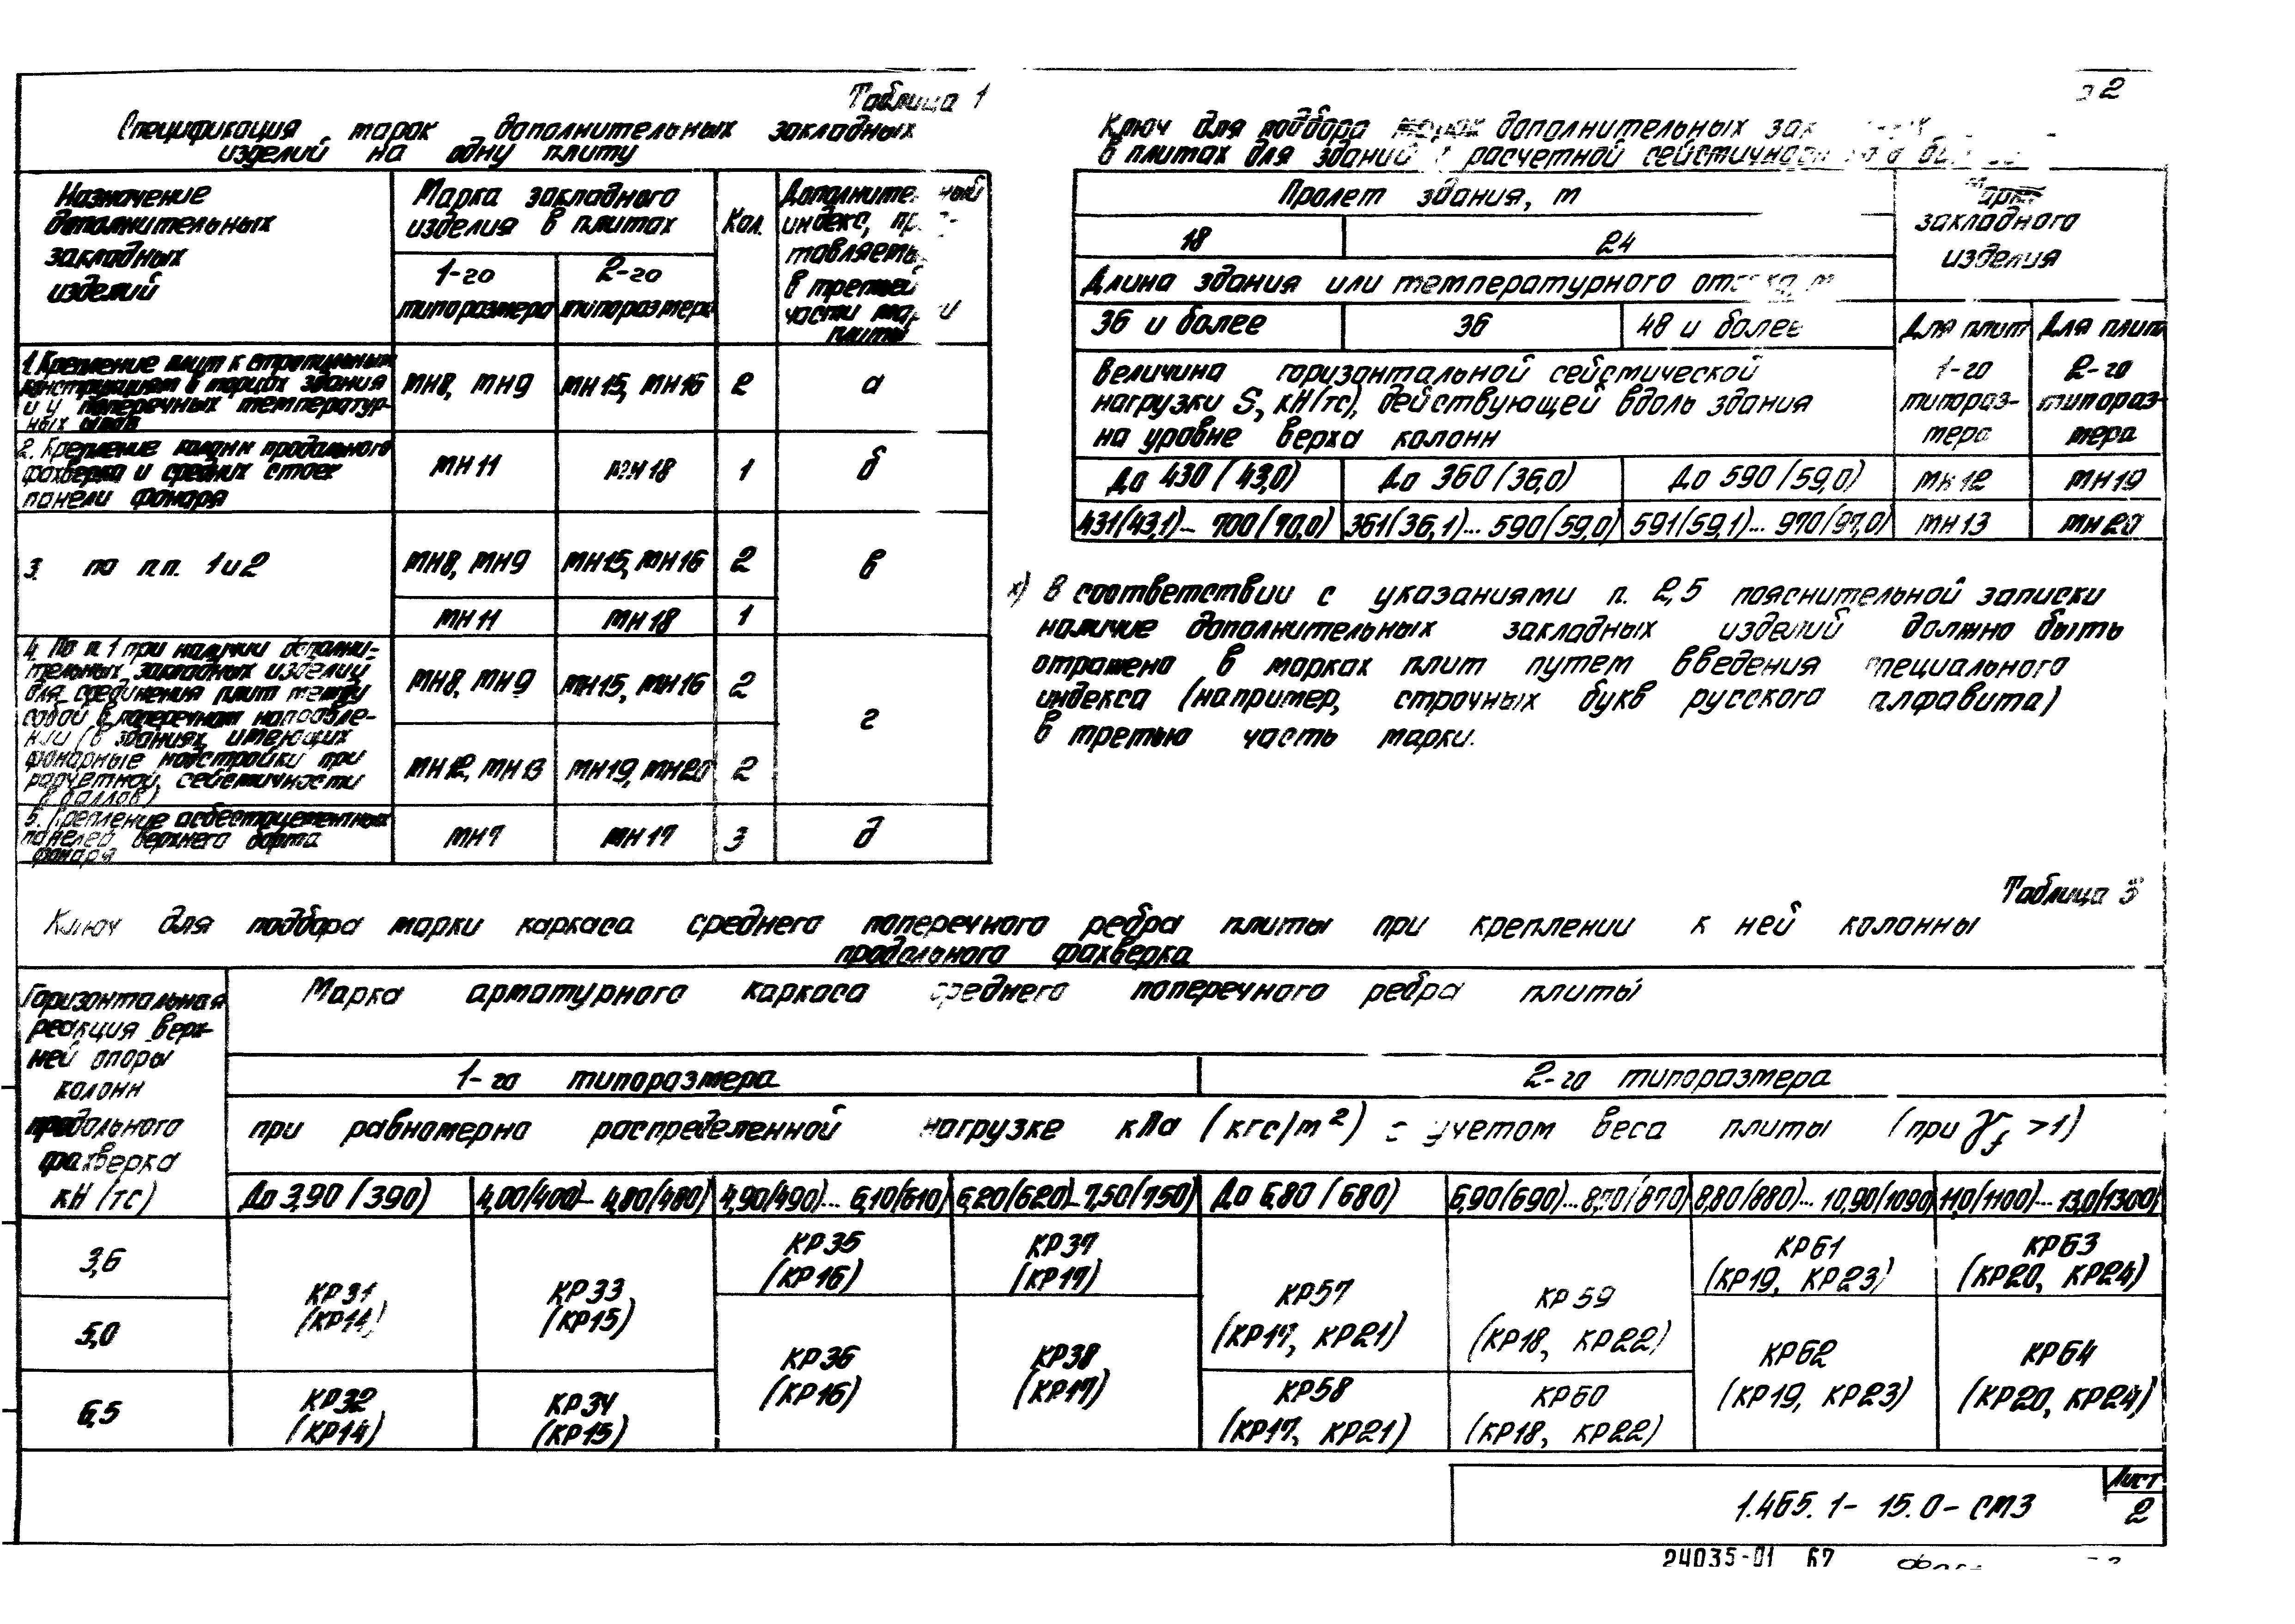 Таблица 1
Спецификация марок дополнительных закладных
изделий на одну плиту
Назначение
дополнительных
закладных
изделий
Марка закладного
изделия в плитах
1-го
типоразмера
2-го
типоразмера
Кол.
индекс,
в третьей
части
плиты
1. Крепление плит к стропильным
конструкциям в торцах здания
и у поперечных температур-
ных швов
МН8, МН9
МН15, МН16
2
а
2. Крепление колонн продольного
фахверка и средних стоек
панели фонаря
МН11
МН18
1
б
3. по п.п. 1 и 2
МН8, МН9
МН15, МН16
2
в
МН11
МН18
1
4. По п.1 при наличии дополни-
тельных закладных изделий
для соединения плит между
собой в поперечном направле-
нии (в зданиях, имеющих
фонарные надстройки при
расчетной сейсмичности
баллов)
МН8, МН9
МН15, МН16
2
г
МН12, МН13
МН19, МН20
2
5. Крепление асбестоцементных
панелей верхнего борта
фонаря
МН7
МН17
3
д
2
Ключ для подбора марок дополнительных
в плитах для зданий с расчетной
Пролет здания, м
Марка
закладного
изделия
18
24
Длина здания или температурного
36 и более
36
48 и более
Для плит
1-го
типораз-
мера
Для плит
2-го
типораз-
мера
Величина горизонтальной сейсмической
нагрузки S, кН(тс), действующей вдоль здания
на уровне верха колонн
До 430 (43,0)
До 360 (36,0)
До 590 (59,0)
МН12
МН19
431(43,1)... 700(70,0)
361(36,1)... 590(59,0)
591(59,1)... 970(97,0)
МН13
МН20
х) В соответствии с указаниями п. 2,5 пояснительной записки
наличие дополнительных закладных изделий должно быть
отражено в марках плит путем введения специального
индекса (например, строчных букв русского алфавита)
в третью часть марки.
Таблица 3
Ключ для подбора марки каркаса среднего поперечного ребра плиты при креплении к ней колонны
продольного фахверка
Горизонтальная
реакция верх-
ней опоры
колонн
продольного
фахверка
кН (тс)
Марка арматурного каркаса среднего поперечного ребра плиты
1-го типоразмера
2-го типоразмера
при равномерно распределенной нагрузке кПа (кгс/м²) с учетом веса плиты (при γf >1)
До 3,90 (390)
4,00(400)... 4,80(480)
4,90(490)... 6,10(610)
6,20(620)...7,50(750)
До 6,80 (680)
6,90(690)...8,70(870)
8,80(880)... 10,90(1090)
11,0(1100)... 13,0(1300)
3,6
5,0
6,5
КР31
(КР14)
КР33
(КР15)
КР35
(КР16)
КР37
(КР17)
КР57
(КР17, КР21)
КР59
(КР18, КР22)
КР61
(КР19, КР23)
КР63
(КР20, КР24)
КР36
(КР16)
КР38
(КР17)
КР62
(КР19, КР23)
КР64
(КР20, КР24)
КР32
(КР14)
КР34
(КР15)
КР58
(КР17, КР21)
КР60
(КР18, КР22)
1.465.1- 15.0- СМ3
Лист
2
24035-01 67